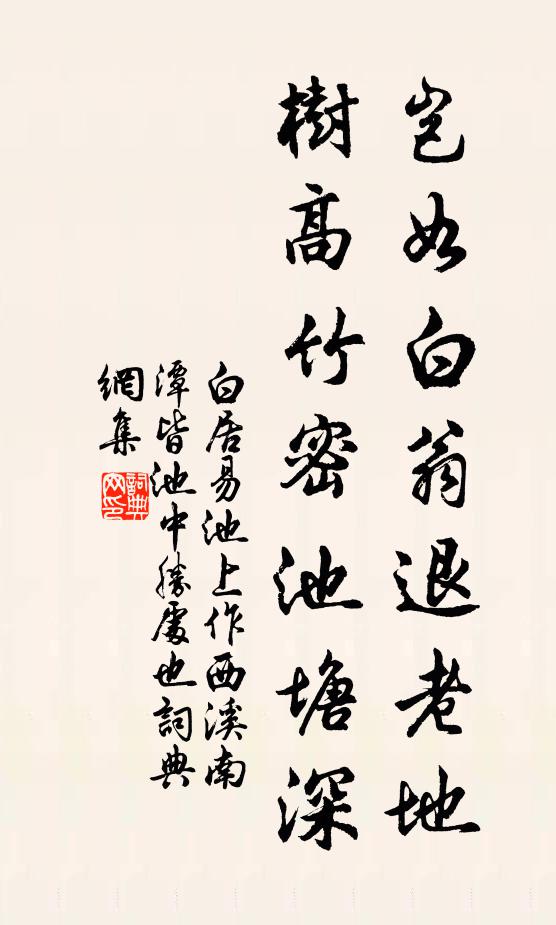 豈如白翁退老地
樹高竹密池塘深
白居易池上作西溪南
潭皆池中勝處也詞典
網集
詞典
网印